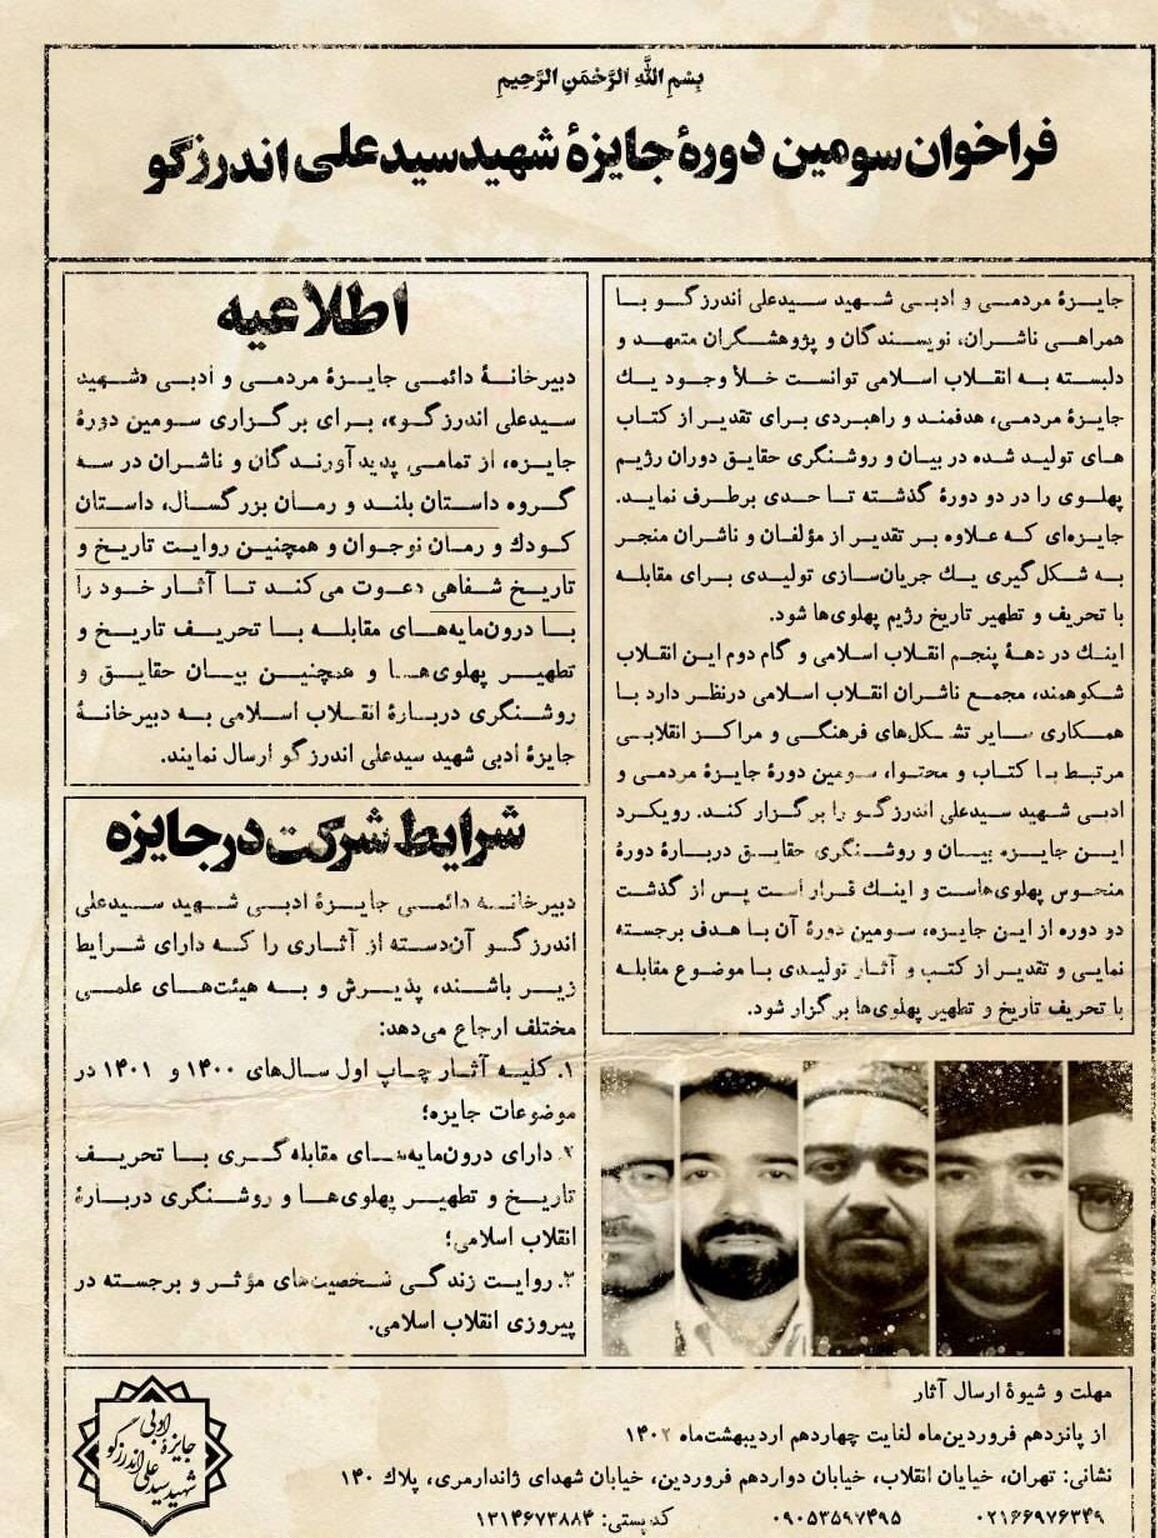 بِسْمِ اللَّهِ الرَّحْمَنِ الرَّحِيمِ
فراخوان سومین دورهٔ جایزهٔ شهید سیدعلی اندرزگو
جایزهٔ مردمی و ادبی شهید سیدعلی اندرزگو با
همراهی ناشران، نویسندگان و پژوهشگران متعهد و
دلبسته به انقلاب اسلامی توانست خلأ وجود یك
جایزهٔ مردمی، هدفمند و راهبردی برای تقدیر از کتاب
های تولید شده در بیان و روشنگری حقایق دوران رژیم
پهلوی را در دو دورهٔ گذشته تا حدی برطرف نماید.
جایزه‌ای که علاوه بر تقدیر از مؤلفان و ناشران منجر
به شکل‌گیری یك جریان‌سازی تولیدی برای مقابله
با تحریف و تطهیر تاریخ رژیم پهلوی‌ها شود.
اینك در دههٔ پنجم انقلاب اسلامی و گام دوم این انقلاب
شکوهمند، مجمع ناشران انقلاب اسلامی درنظر دارد با
همکاری سایر تشکل‌های فرهنگی و مراکز انقلابی
مرتبط با کتاب و محتوا، سومین دورهٔ جایزهٔ مردمی و
ادبی شهید سیدعلی اندرزگو را برگزار کند. رویکرد
این جایزه بیان و روشنگری حقایق دربارهٔ دورهٔ
منحوس پهلوی‌هاست و اینك قرار است پس از گذشت
دو دوره از این جایزه، سومین دورهٔ آن با هدف برجسته
نمایی و تقدیر از کتب و آثار تولیدی با موضوع مقابله
با تحریف تاریخ و تطهیر پهلوی‌ها برگزار شود.
اطلاعیه
دبیرخانهٔ دائمی جایزهٔ مردمی و ادبی «شهید
سیدعلی اندرزگو»، برای برگزاری سومین دورهٔ
جایزه، از تمامی پدیدآورندگان و ناشران در سه
گروه داستان بلند و رمان بزرگسال، داستان
کودك و رمان نوجوان و همچنین روایت تاریخ و
تاریخ شفاهی دعوت می‌کند تا آثار خود را
با درون‌مایه‌های مقابله با تحریف تاریخ و
تطهیر پهلوی‌ها و همچنین بیان حقایق و
روشنگری دربارهٔ انقلاب اسلامی به دبیرخانهٔ
جایزهٔ ادبی شهید سیدعلی اندرزگو ارسال نمایند.
شرایط شرکت در جایزه
دبیرخانه دائمی جایزهٔ ادبی شهید سیدعلی
اندرزگو آن‌دسته از آثاری را که دارای شرایط
زیر باشند، پذیرش و به هیئت‌های علمی
مختلف ارجاع می‌دهد:
۱. کلیه آثار چاپ اول سال‌های ۱۴۰۰ و ۱۴۰۱ در
موضوعات جایزه؛
۲. دارای درون‌مایه‌های مقابله‌گری با تحریف
تاریخ و تطهیر پهلوی‌ها و روشنگری دربارهٔ
انقلاب اسلامی؛
۳. روایت زندگی شخصیت‌های مؤثر و برجسته در
پیروزی انقلاب اسلامی.
مهلت و شیوهٔ ارسال آثار
از پانزدهم فروردین‌ماه لغایت چهاردهم اردیبهشت‌ماه ۱۴۰۲
نشانی: تهران، خیابان انقلاب، خیابان دوازدهم فروردین، خیابان شهدای ژاندارمری، پلاك ۱۴۰
۰۲۱۶۶۹۷۶۳۴۹ ۰۹۰۵۳۵۹۷۴۹۵ کدپستی: ۱۳۱۴۶۷۳۸۸۴
جایزهٔ ادبی
شهید سیدعلی اندرزگو